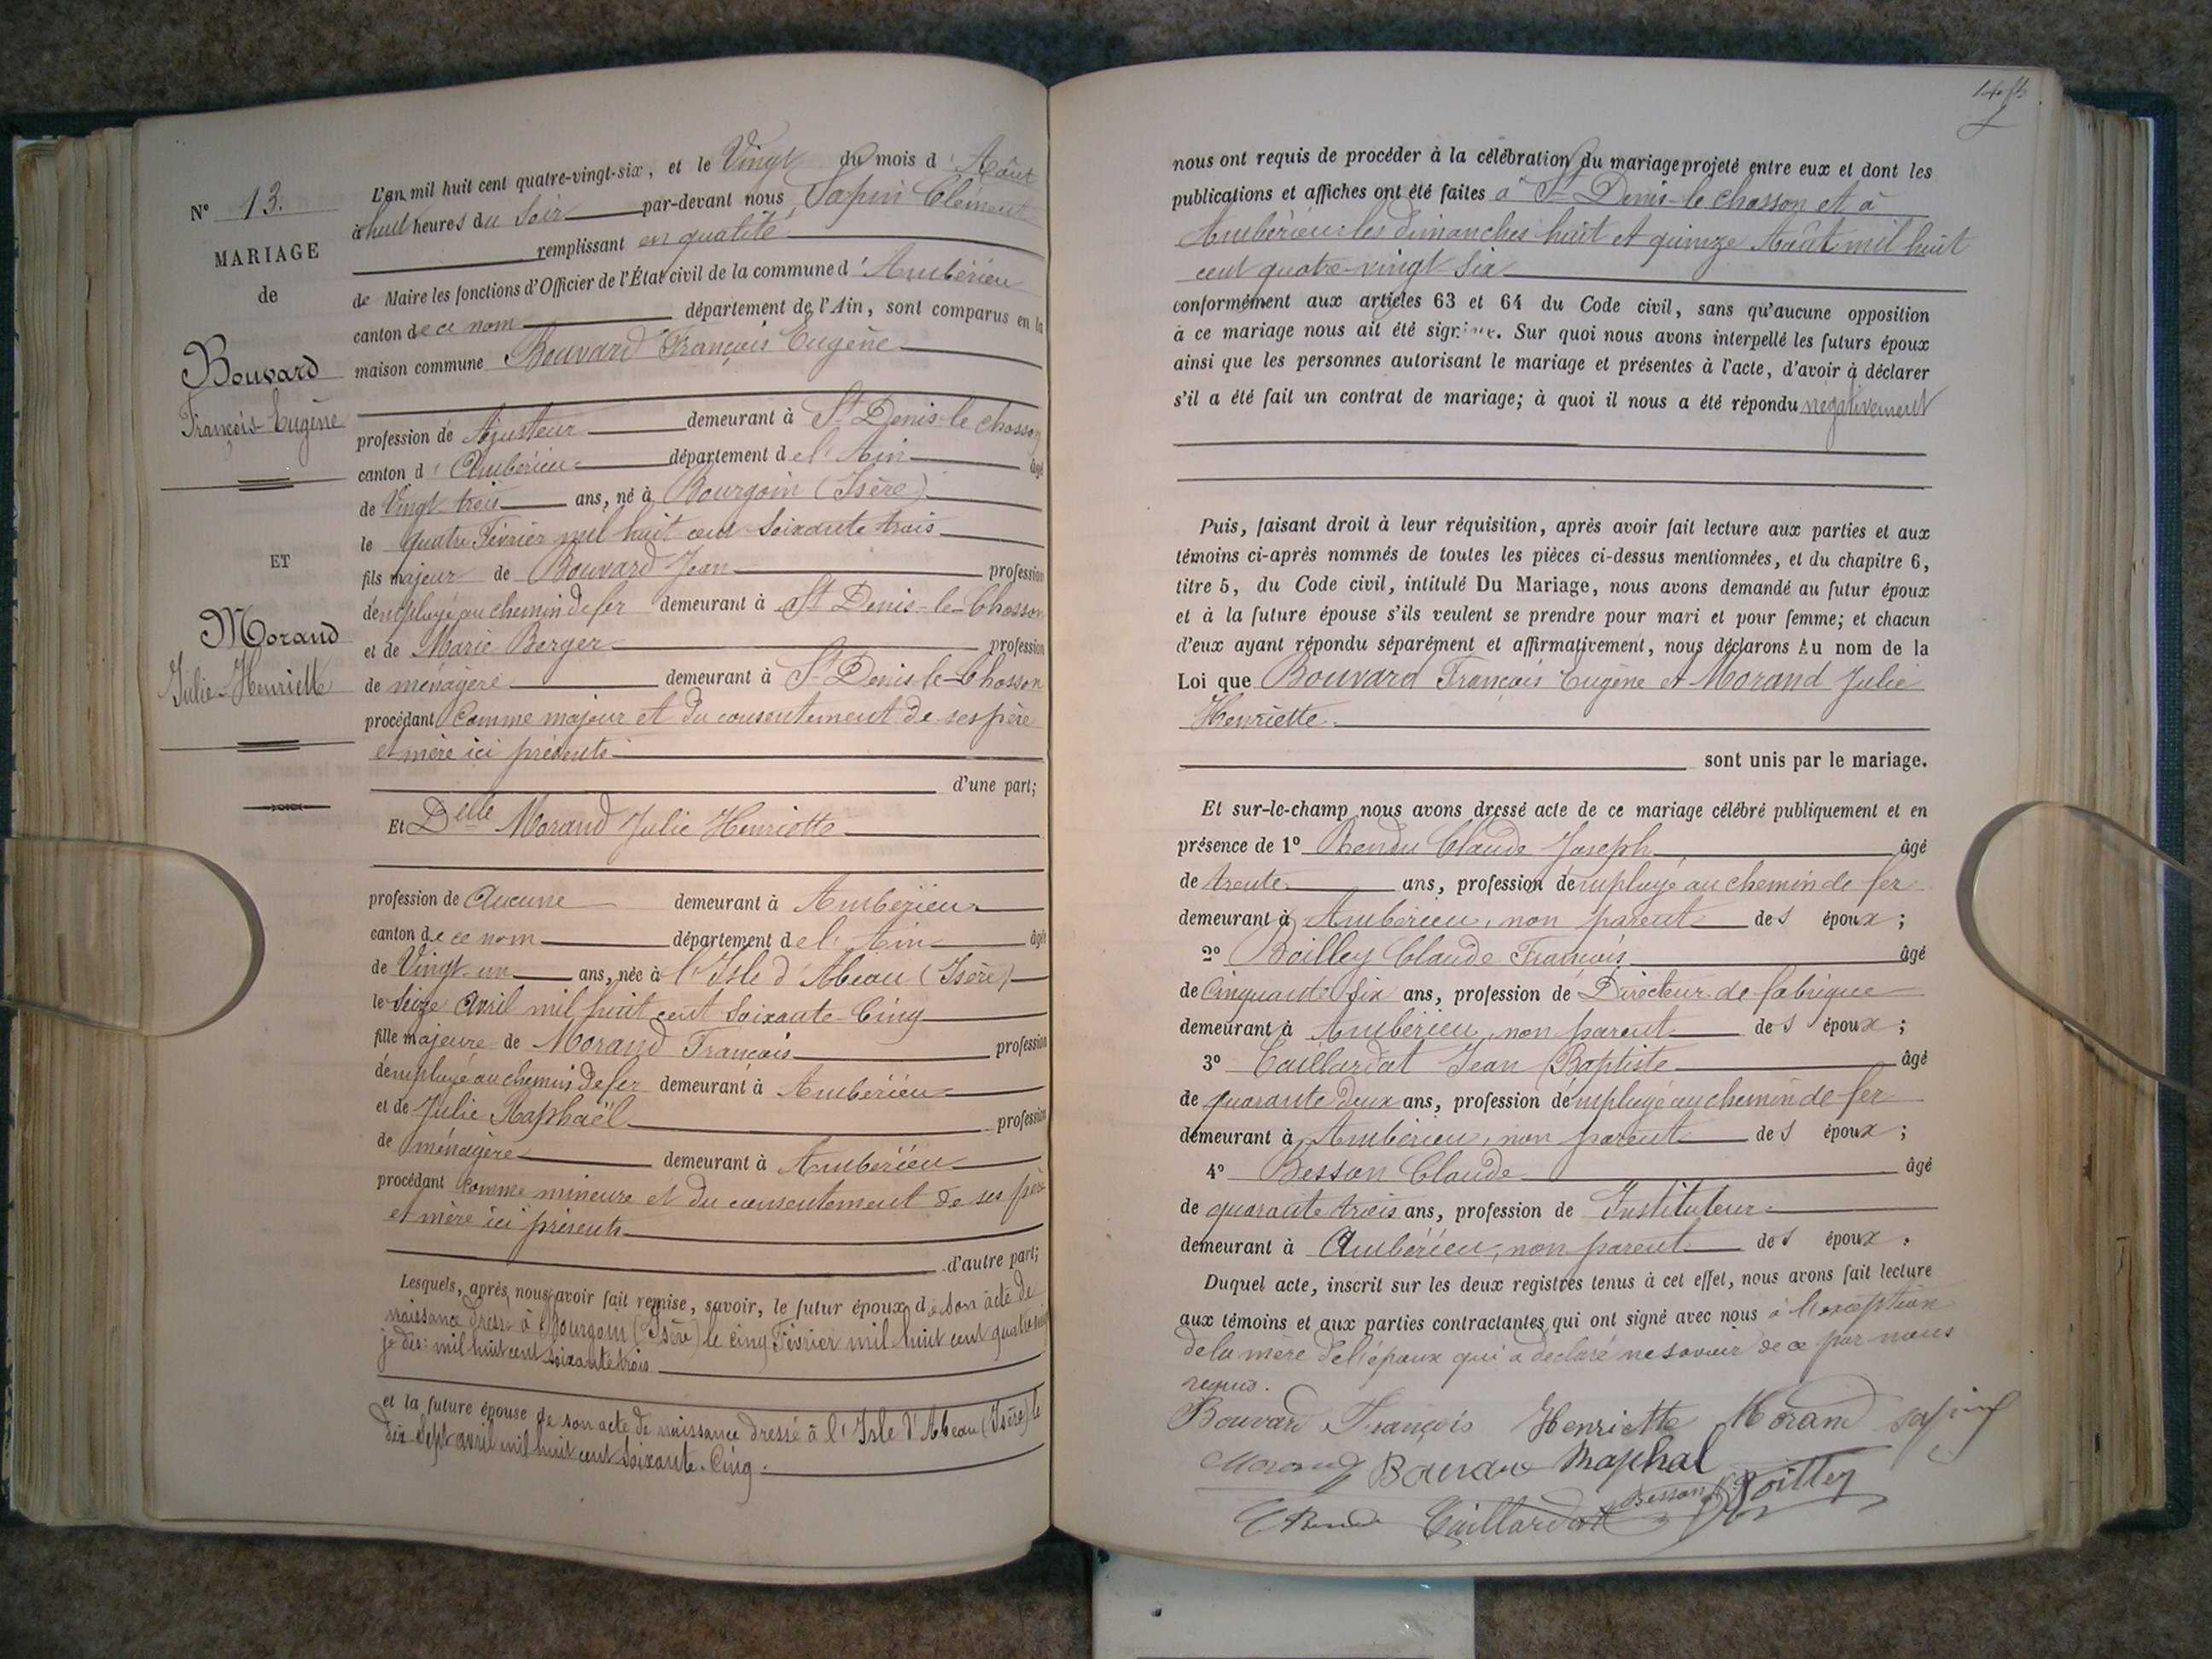 N° 13.
MARIAGE
de
Bouvard
François-Eugène
ET
Morand
Julie Henriette
L'an mil huit cent quatre-vingt-six, et le Vingt du mois d'Août
à huit heures du Soir par-devant nous Sapin Clément
remplissant en qualité
de Maire les fonctions d'Officier de l'État civil de la commune d'Ambérieu
canton de ce nom département de l'Ain, sont comparus en la
maison commune Bouvard François Eugène
profession de Ajusteur demeurant à St Denis-le chosson
canton d'Ambérieu département de l'Ain âgé
de Vingt trois ans, né à Bourgoin (Isère)
le quatre Février mil huit cent soixante trois
fils majeur de Bouvard Jean profession
d'employé au chemin de fer demeurant à St Denis-le-Chosson
et de Marie Berger profession
de ménagère demeurant à St Denis-le-Chosson
procédant Comme majeur et du consentement de ses père
et mère ici présents
d'une part;
Et Delle Morand Julie Henriette
profession de Aucune demeurant à Ambérieu
canton de ce nom département de l'Ain âgée
de Vingt-un ans, née à l'Isle d'Abeau (Isère)
le Seize Avril mil huit cent Soixante-Cinq
fille majeure de Morand François profession
d'employé au chemin de fer demeurant à Ambérieu
et de Julie Raphaël profession
de ménagère demeurant à Ambérieu
procédant comme mineure et du consentement de ses père
et mère ici présents
d'autre part;
Lesquels, après nous avoir fait remise, savoir, le futur époux de son acte de
naissance dressé à Bourgoin (Isère) le cinq Février mil huit cent quatre vingt
je dis: mil huit cent soixante trois
et la future épouse de son acte de naissance dressé à l'Isle d'Abeau (Isère) le
dix-Sept avril mil huit cent Soixante-Cinq.
nous ont requis de procéder à la célébration du mariage projeté entre eux et dont les
publications et affiches ont été faites à St Denis-le chosson et à
Ambérieu les dimanches huit et quinze Août mil huit
cent quatre-vingt six
conformément aux articles 63 et 64 du Code civil, sans qu'aucune opposition
à ce mariage nous ait été signifiée. Sur quoi nous avons interpellé les futurs époux
ainsi que les personnes autorisant le mariage et présentes à l'acte, d'avoir à déclarer
s'il a été fait un contrat de mariage; à quoi il nous a été répondu négativement
Puis, faisant droit à leur réquisition, après avoir fait lecture aux parties et aux
témoins ci-après nommés de toutes les pièces ci-dessus mentionnées, et du chapitre 6,
titre 5, du Code civil, intitulé Du Mariage, nous avons demandé au futur époux
et à la future épouse s'ils veulent se prendre pour mari et pour femme; et chacun
d'eux ayant répondu séparément et affirmativement, nous déclarons Au nom de la
Loi que Bouvard François Eugène et Morand Julie
Henriette
sont unis par le mariage.
Et sur-le-champ nous avons dressé acte de ce mariage célébré publiquement et en
présence de 1° Rendu Claude Joseph âgé
de trente ans, profession d'employé au chemin de fer
demeurant à Ambérieu, non parent des époux;
2° Boilley Claude François âgé
de Cinquante six ans, profession de Directeur de fabrique
demeurant à Ambérieu, non parent des époux;
3° Caillardat Jean Baptiste âgé
de quarante deux ans, profession d'employé au chemin de fer
demeurant à Ambérieu, non parent des époux;
4° Besson Claude âgé
de quarante trois ans, profession de Instituteur
demeurant à Ambérieu, non parent des époux.
Duquel acte, inscrit sur les deux registres tenus à cet effet, nous avons fait lecture
aux témoins et aux parties contractantes qui ont signé avec nous à l'exception
de la mère de l'époux qui a déclaré ne savoir de ce par nous
requis.
Bouvard François Henriette Morand Sapin
Morand Bouvard Raphal
Rendu Caillardat Besson Boilley